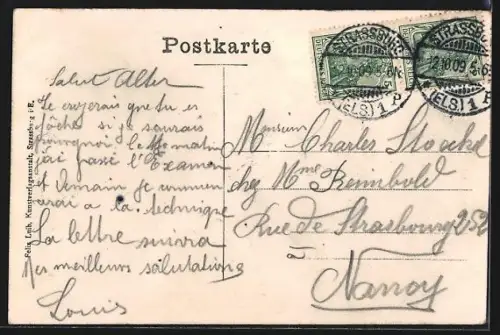 Postkarte
STRASSBURG
2.10.09.5-6N
(ELS.) 1 P
STRASSBURG
2.10.09.5-6N
(ELS.) 1 P
Salut Alter
Je croyais que tu es
fâché si je saurais
pourquoi. ce matin
j'ai passé l'Examen
et demain je commen
cerai a la technique
La lettre suivra
Mes meilleurs salutations
Louis
Monsieur Charles Stoeckel
chez Mme Reimbold
Rue de Strasbourg 252
à Nancy
Felix Luib, Kunstverlagsanstalt, Strassburg i/E.